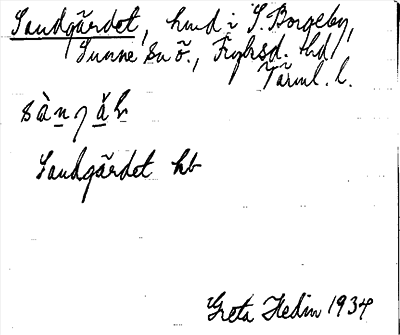 Sandgärdet, hmd i S. Borgeby,
Sunne sn ö., Fryksd. hd
Värml. l.
sàn γ ăh
Sandgärdet hb
Greta Hedin 1934